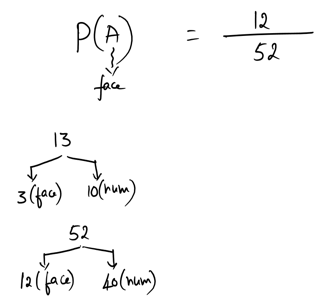 P(A) = 12/52
face
13
3(face) 10(num)
52
12(face) 40(num)